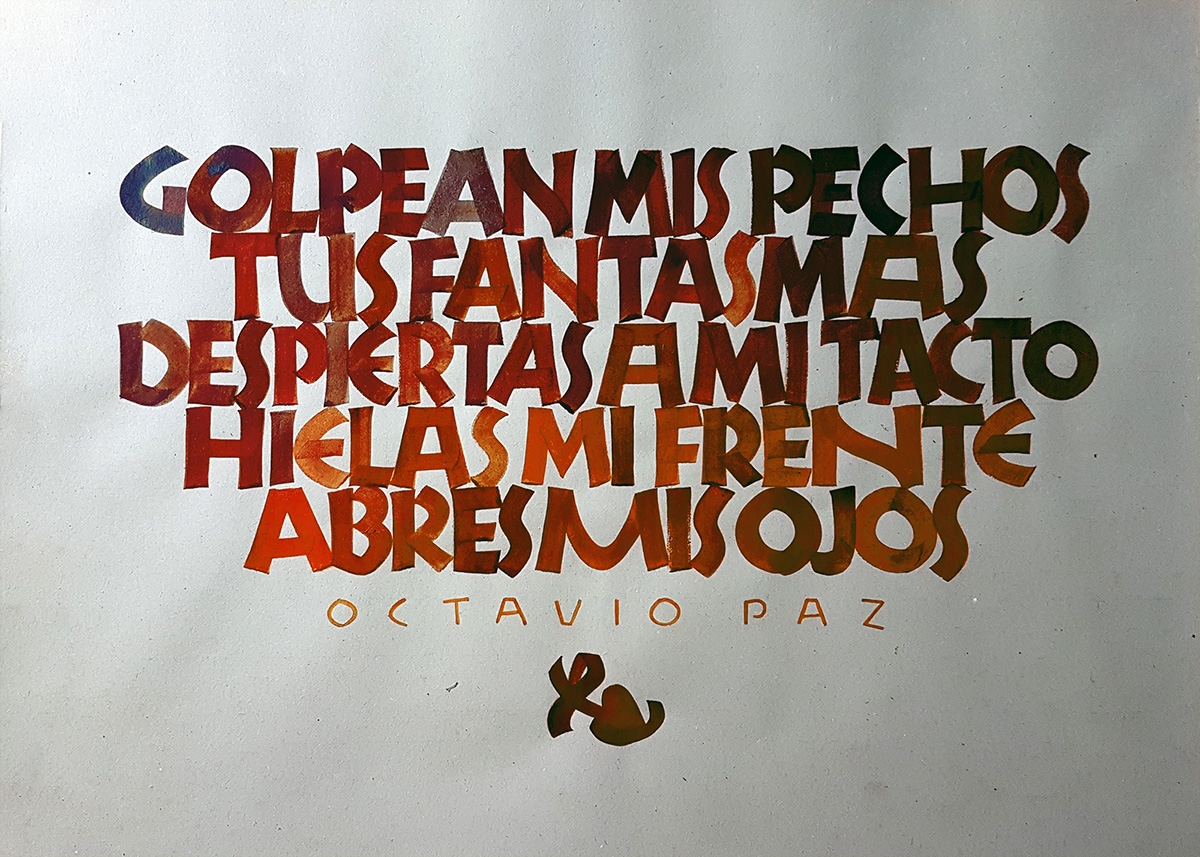 GOLPEAN MIS PECHOS
TUS FANTASMAS
DESPIERTAS A MI TACTO
HIELAS MI FRENTE
ABRES MIS OJOS
OCTAVIO PAZ